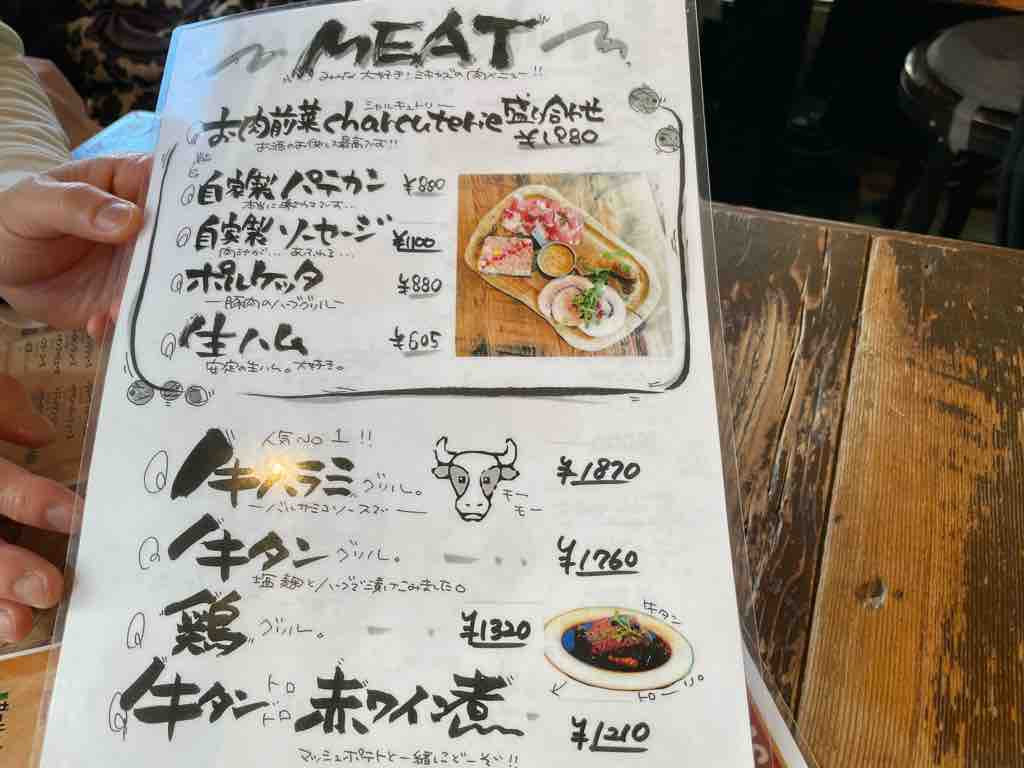 MEAT
大好き! ミキカズの肉メニュー!!
シャルキュトリー
お肉前菜 charcuterie 盛り合わせ
¥1,980
お酒のお供に最高です!!
自家製 パテカン ¥880
自家製 ソーセージ ¥1100
ポルケッタ ¥880
—豚肉のハーブグリル—
生ハム ¥605
安定の生ハム。大好き。
人気NO1!!
牛ハラミ グリル。 ¥1870
—バルサミコソースで—
モー
モー
牛タン グリル。 ¥1760
塩麹とハーブで漬けこみました。
鶏 グリル。 ¥1320
牛タン
トローリ
牛タン トロトロ 赤ワイン煮 ¥1210
マッシュポテトと一緒にどーぞ!!